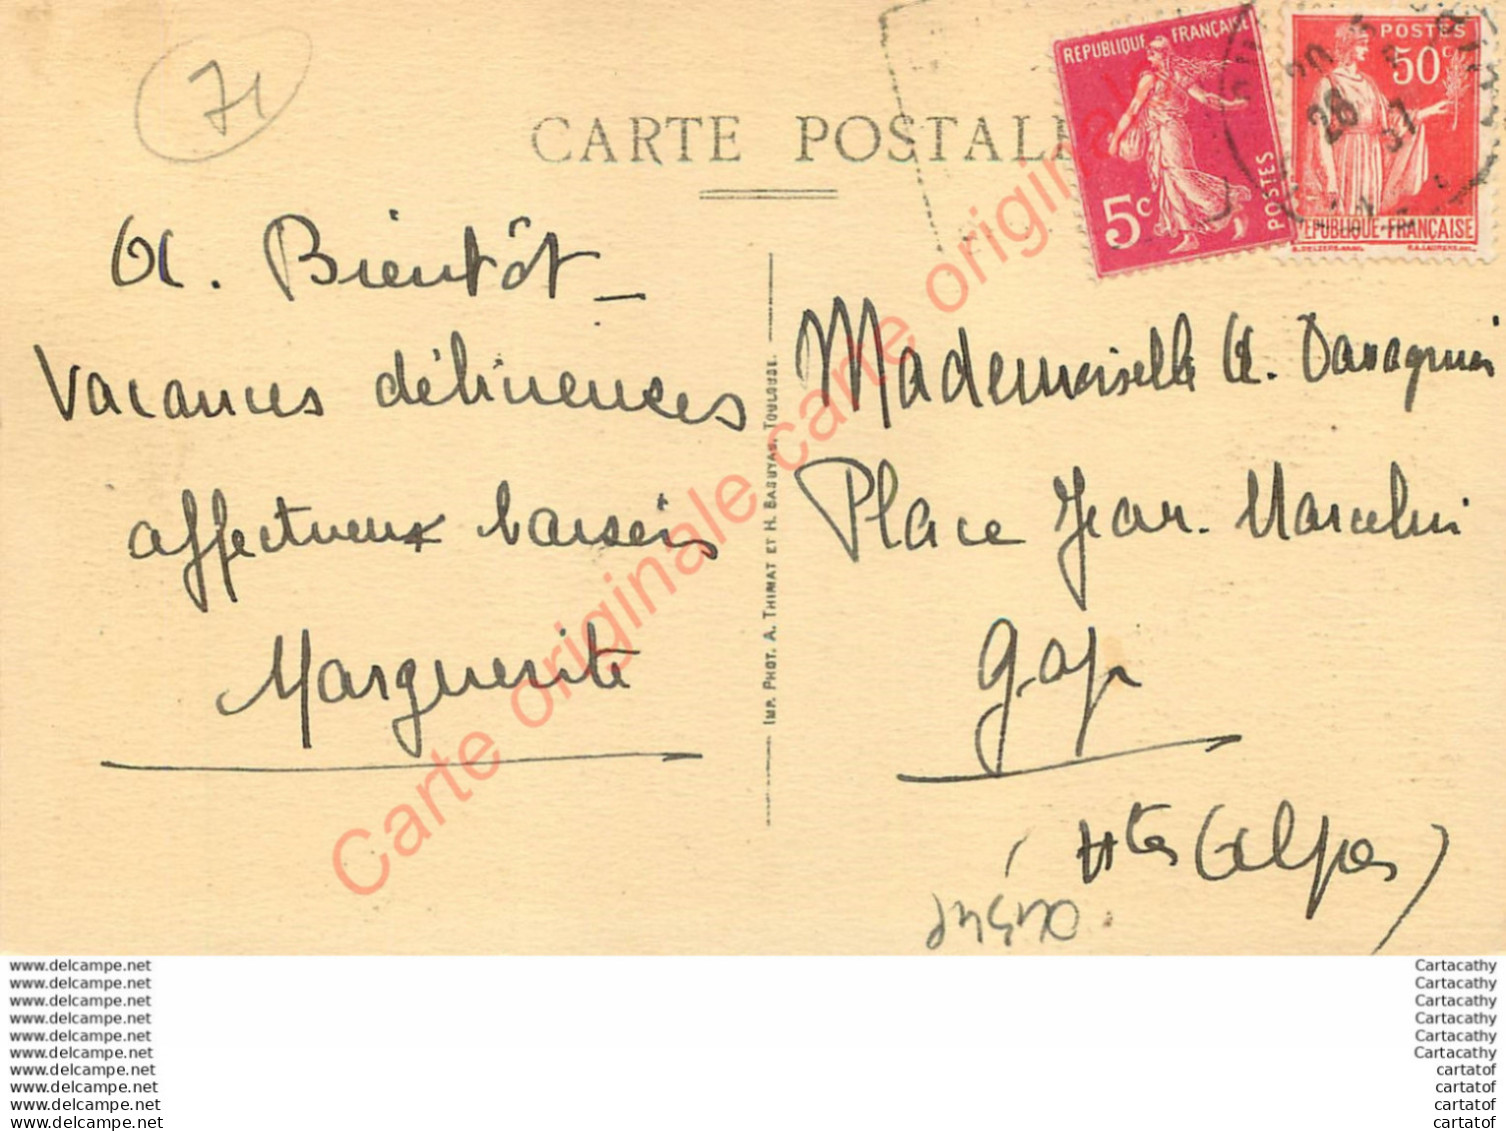 71
CARTE POSTALE
RÉPUBLIQUE FRANÇAISE
5c
POSTES
POSTES
50c
RÉPUBLIQUE FRANÇAISE
20
28 37
A. Bientôt_
Vacances délicieuses
affectueux baisers
Marguerite
IMP. PHOT. A. THIRIAT ET H. BASUYAU. TOULOUSE.
Mademoiselle A.
Place Jean. Marcellin
Gap
(Htes Alpes)
Carte originale carte originale
www.delcampe.net
www.delcampe.net
www.delcampe.net
www.delcampe.net
www.delcampe.net
www.delcampe.net
www.delcampe.net
www.delcampe.net
www.delcampe.net
www.delcampe.net
Cartacathy
Cartacathy
Cartacathy
Cartacathy
Cartacathy
Cartacathy
cartatof
cartatof
cartatof
cartatof